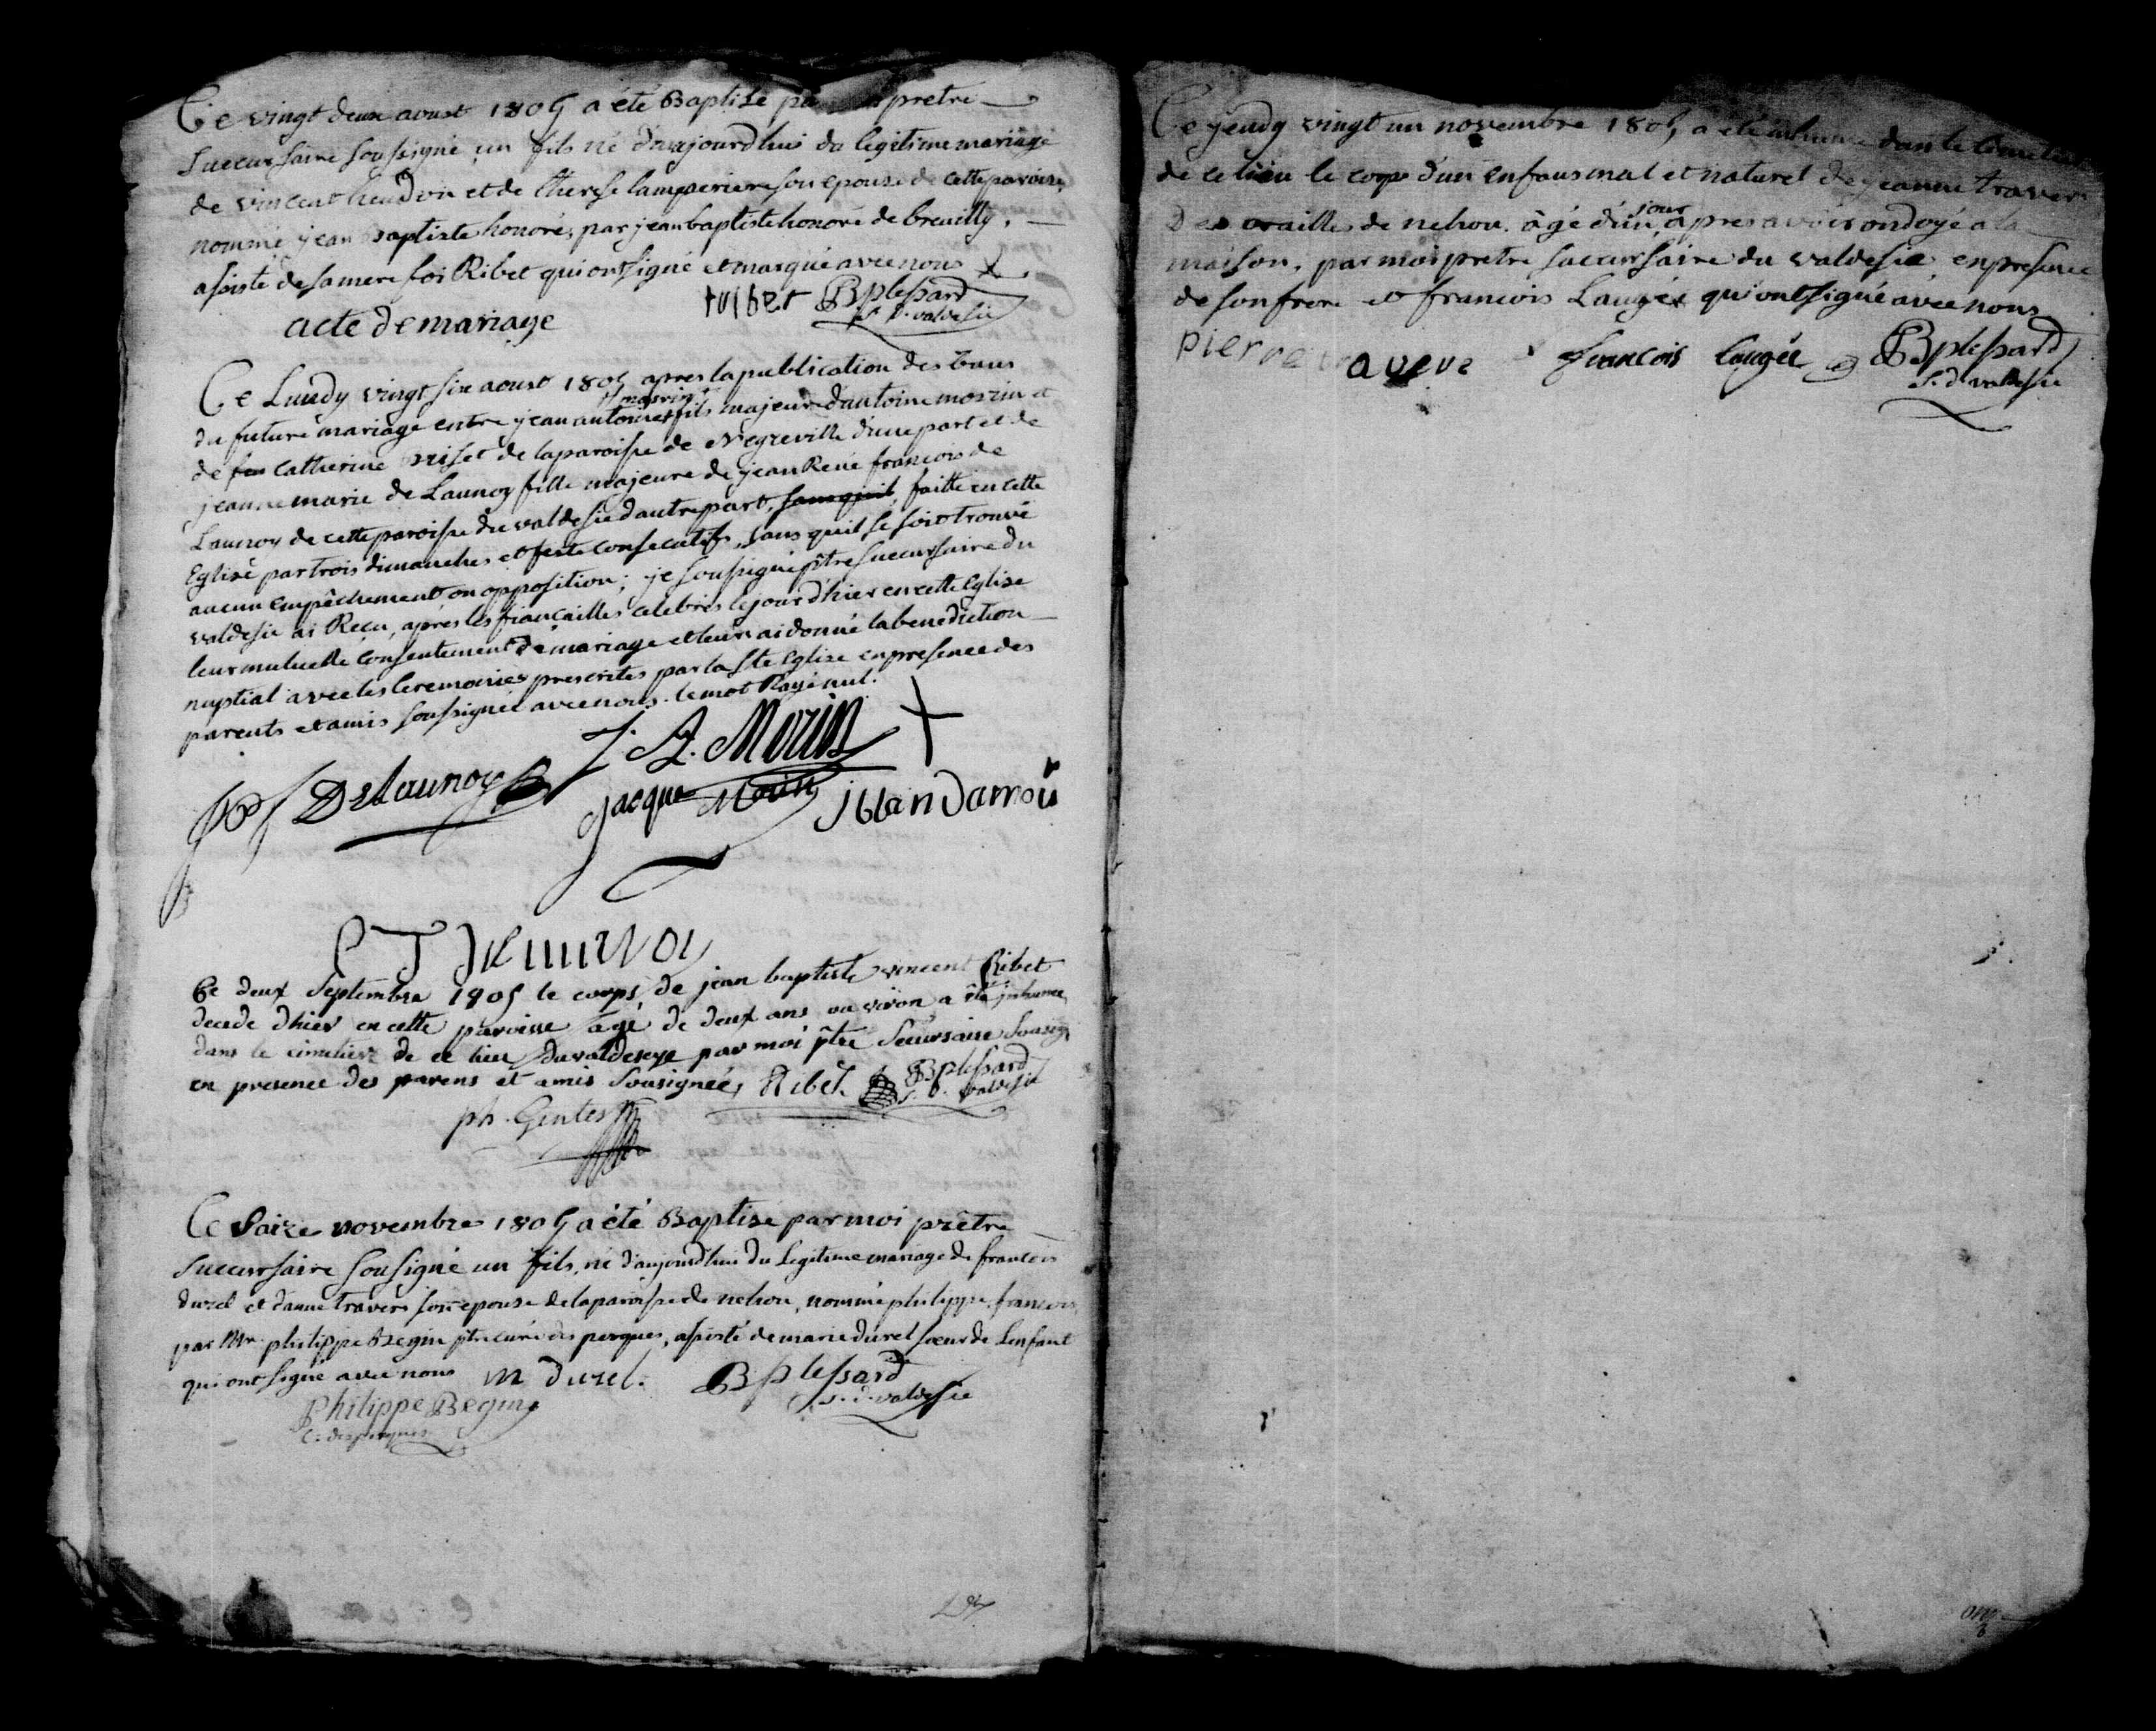 Ce vingt deux aoust 1805 a été Baptisé pretre
succursaire soussigné un fils né d'aujourdhui du legitime mariage
de vincent heudon et de therese lamperiere son epouse de cette paroisse
nommé jean Baptiste honoré, par jean baptiste honoré de breuilly,
assisté de sa mere Ribet qui ont signé et marqué avec nous
ribet BPlessard
s. d. valdesie
acte de mariage
Ce Lundy vingt six aoust 1805 apres la publication des bans
du future mariage entre jean antoine morin fils majeure d'antoine morin et
de feu catherine de la paroisse de Negreville d'une part et de
jeanne marie de Launoy fille majeure de jean René francois de
Launoy de cette paroisse du valdesie d'autre part, sans quil, faitte en cette
Eglise par trois dimanches et feste consecutifs, sans quil se soit trouvé
aucun empêchement ou opposition; je soussigné ptre succursaire du
valdesie ai Recu, apres les fiançailles celebrés le jour d'hier en cette Eglise
leur mutuelle consentement de mariage et leur ai donné la benediction
nuptial avec les ceremonies prescrites par la Ste Eglise en presence des
parents et amis soussignés avec nous. le mot Rayé nul.
J. A. Morin +
Delaunoy
jacque Morin
Ce deux Septembre 1805 le corps de jean baptiste vincent Ribet
decede d'hier en cette paroisse agé de deux ans ou viron a été inhumé
dans le cimetiere de ce lieu du valdesie par moi ptre Secursaire Sousig
en presence des parens et amis Sousignées Ribet. BPlessard
s. d. valdesie
ph. Gentes
Ce Saize novembre 1805 a été Baptisé par moi prêtre
succursaire sousigné un fils, né d'aujourdhui du Legitime mariage de francois
durel et d'anne travers son epouse de la paroisse de nehou, nommé philippe francois
par Mr. philippe Begin ptre curé des perques, assisté de marie durel sœur de Lenfant
qui ont signé avec nous m durel. BPlessard
s. d. valdesie
Philippe Begin
C. des perques
Ce jeudy vingt un novembre 1805 a eté inhumé dans le cimetiere
de ce lieu le corps d'un enfans mal et naturel de jeanne travers
Des de nehou. âgé d'un jour apres avoir ondoyé a la
maison, par moi pretre succursaire du valdesie, en presence
de son frere et francois Laugée qui ont signé avec nous
Pierre francois Laugée BPlessard
s. d. valdesie